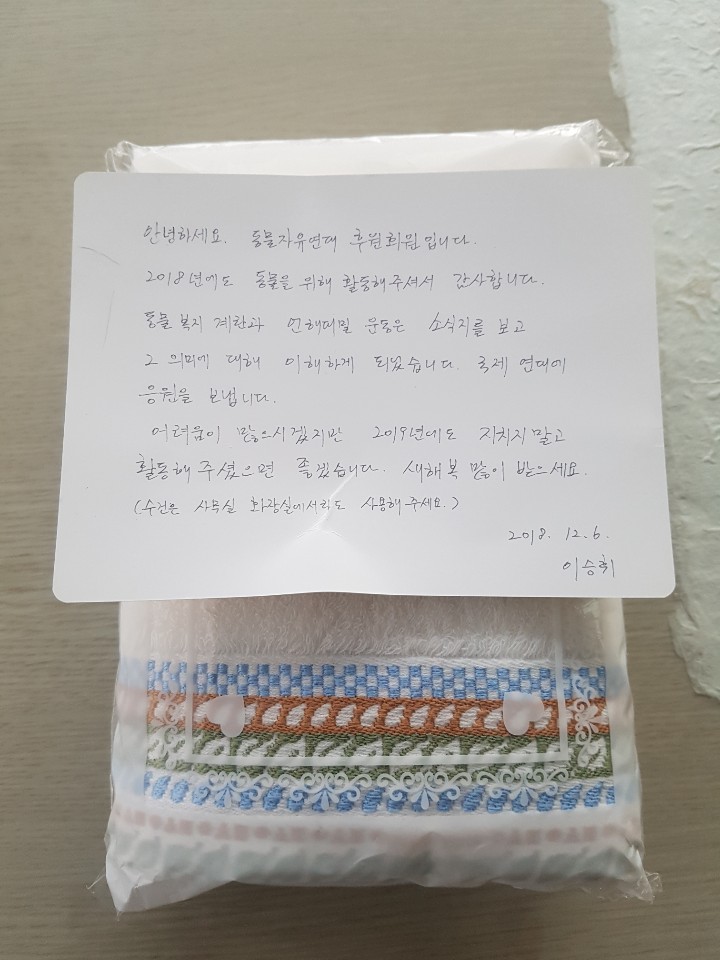 안녕하세요. 동물자유연대 후원회원입니다.
2018년에도 동물을 위해 활동해주셔서 감사합니다.
동물 복지 계란과 언해태밀 운동은 소식지를 보고
그 의미에 대해 이해하게 되었습니다. 국제 연대에
응원을 보냅니다.
어려움이 많으시겠지만 2019년에도 지치지 말고
활동해 주셨으면 좋겠습니다. 새해 복 많이 받으세요.
(수건은 사무실 화장실에서라도 사용해주세요.)
2018. 12. 6.
이승휘